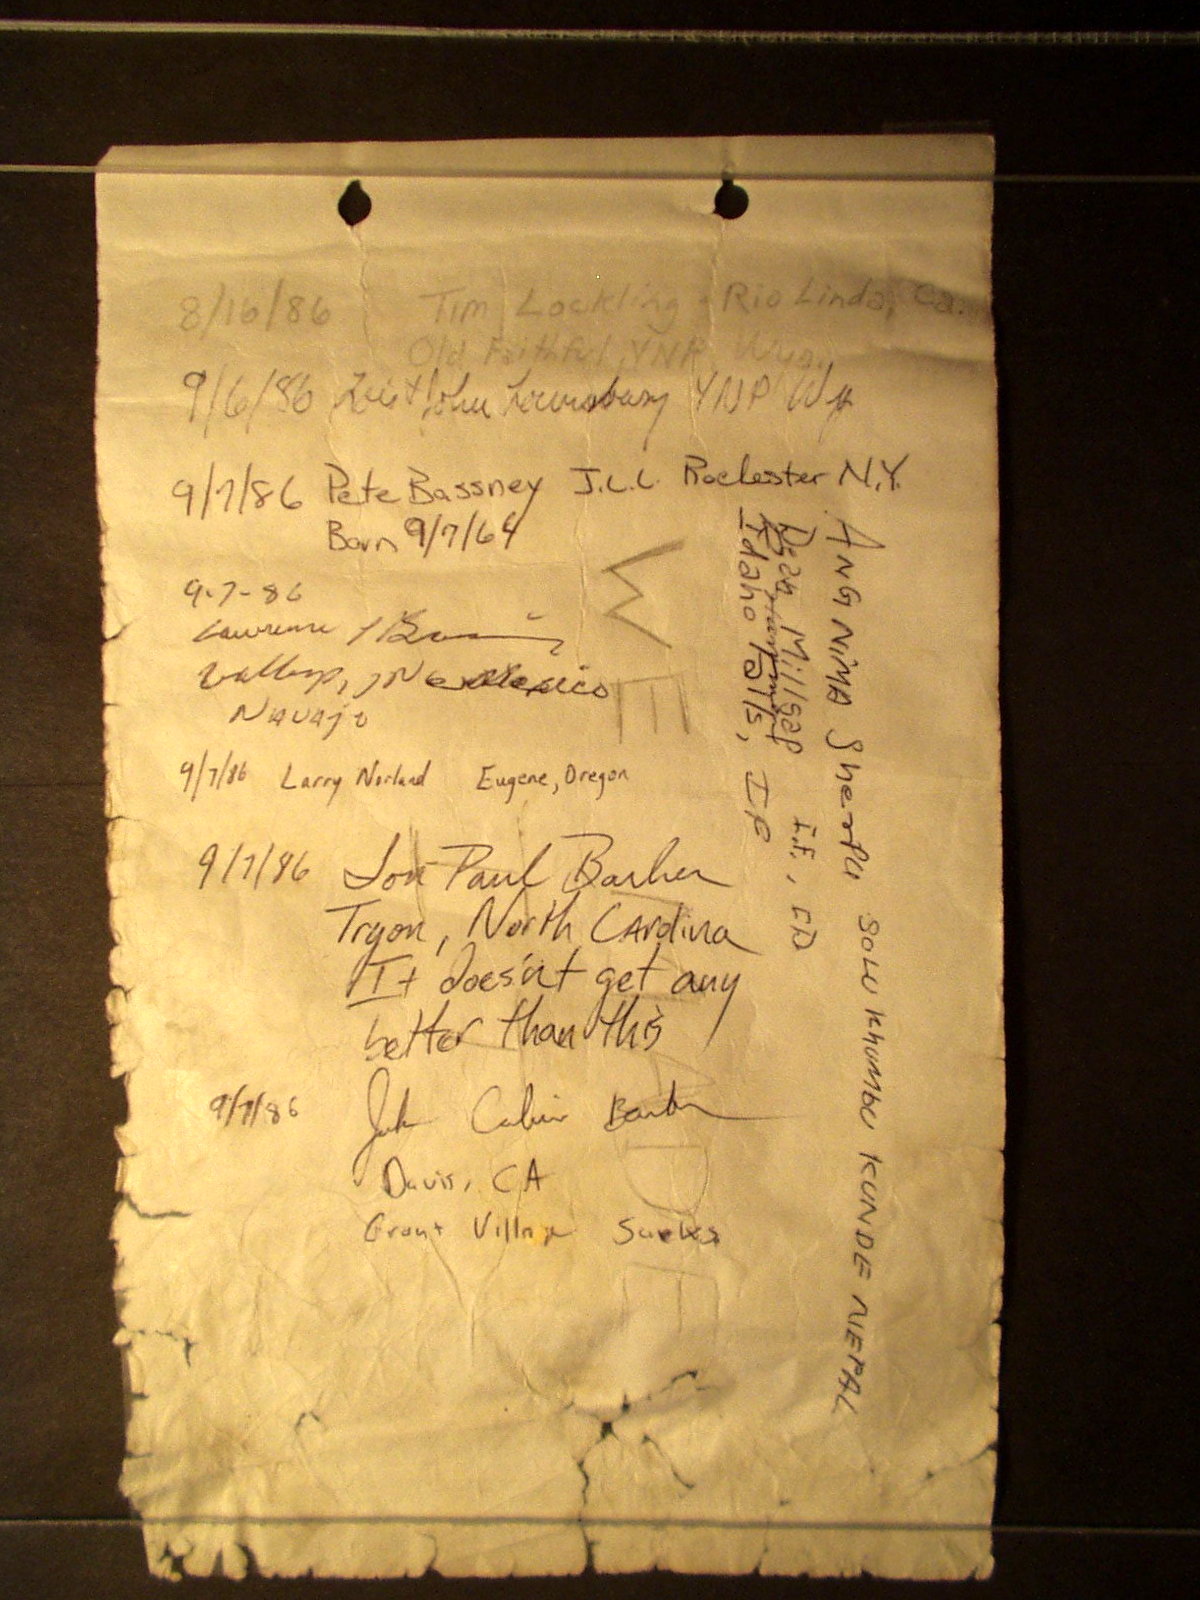 8/16/86 Tim Lockling - Rio Linda, Ca.
Old Faithful, YNP, Wyo.
9/6/86 John YNP Wy
9/7/86 Pete Bassney J.L.L. Rochester N.Y.
Born 9/7/64
9-7-86
Lawrence
New Mexico
Navajo
9/7/86 Larry Norland Eugene, Oregon
9/7/86 Jon Paul Barber
Tryon, North Carolina
It doesn't get any
better than this
9/7/86 John Calvin Barber
Davis, CA
Grant Village Sucks
ANG NIMA Sherpa SOLU KHUMBU KUNDE NEPAL
Dean Millgap I.F., ID
Idaho Falls, ID
WE